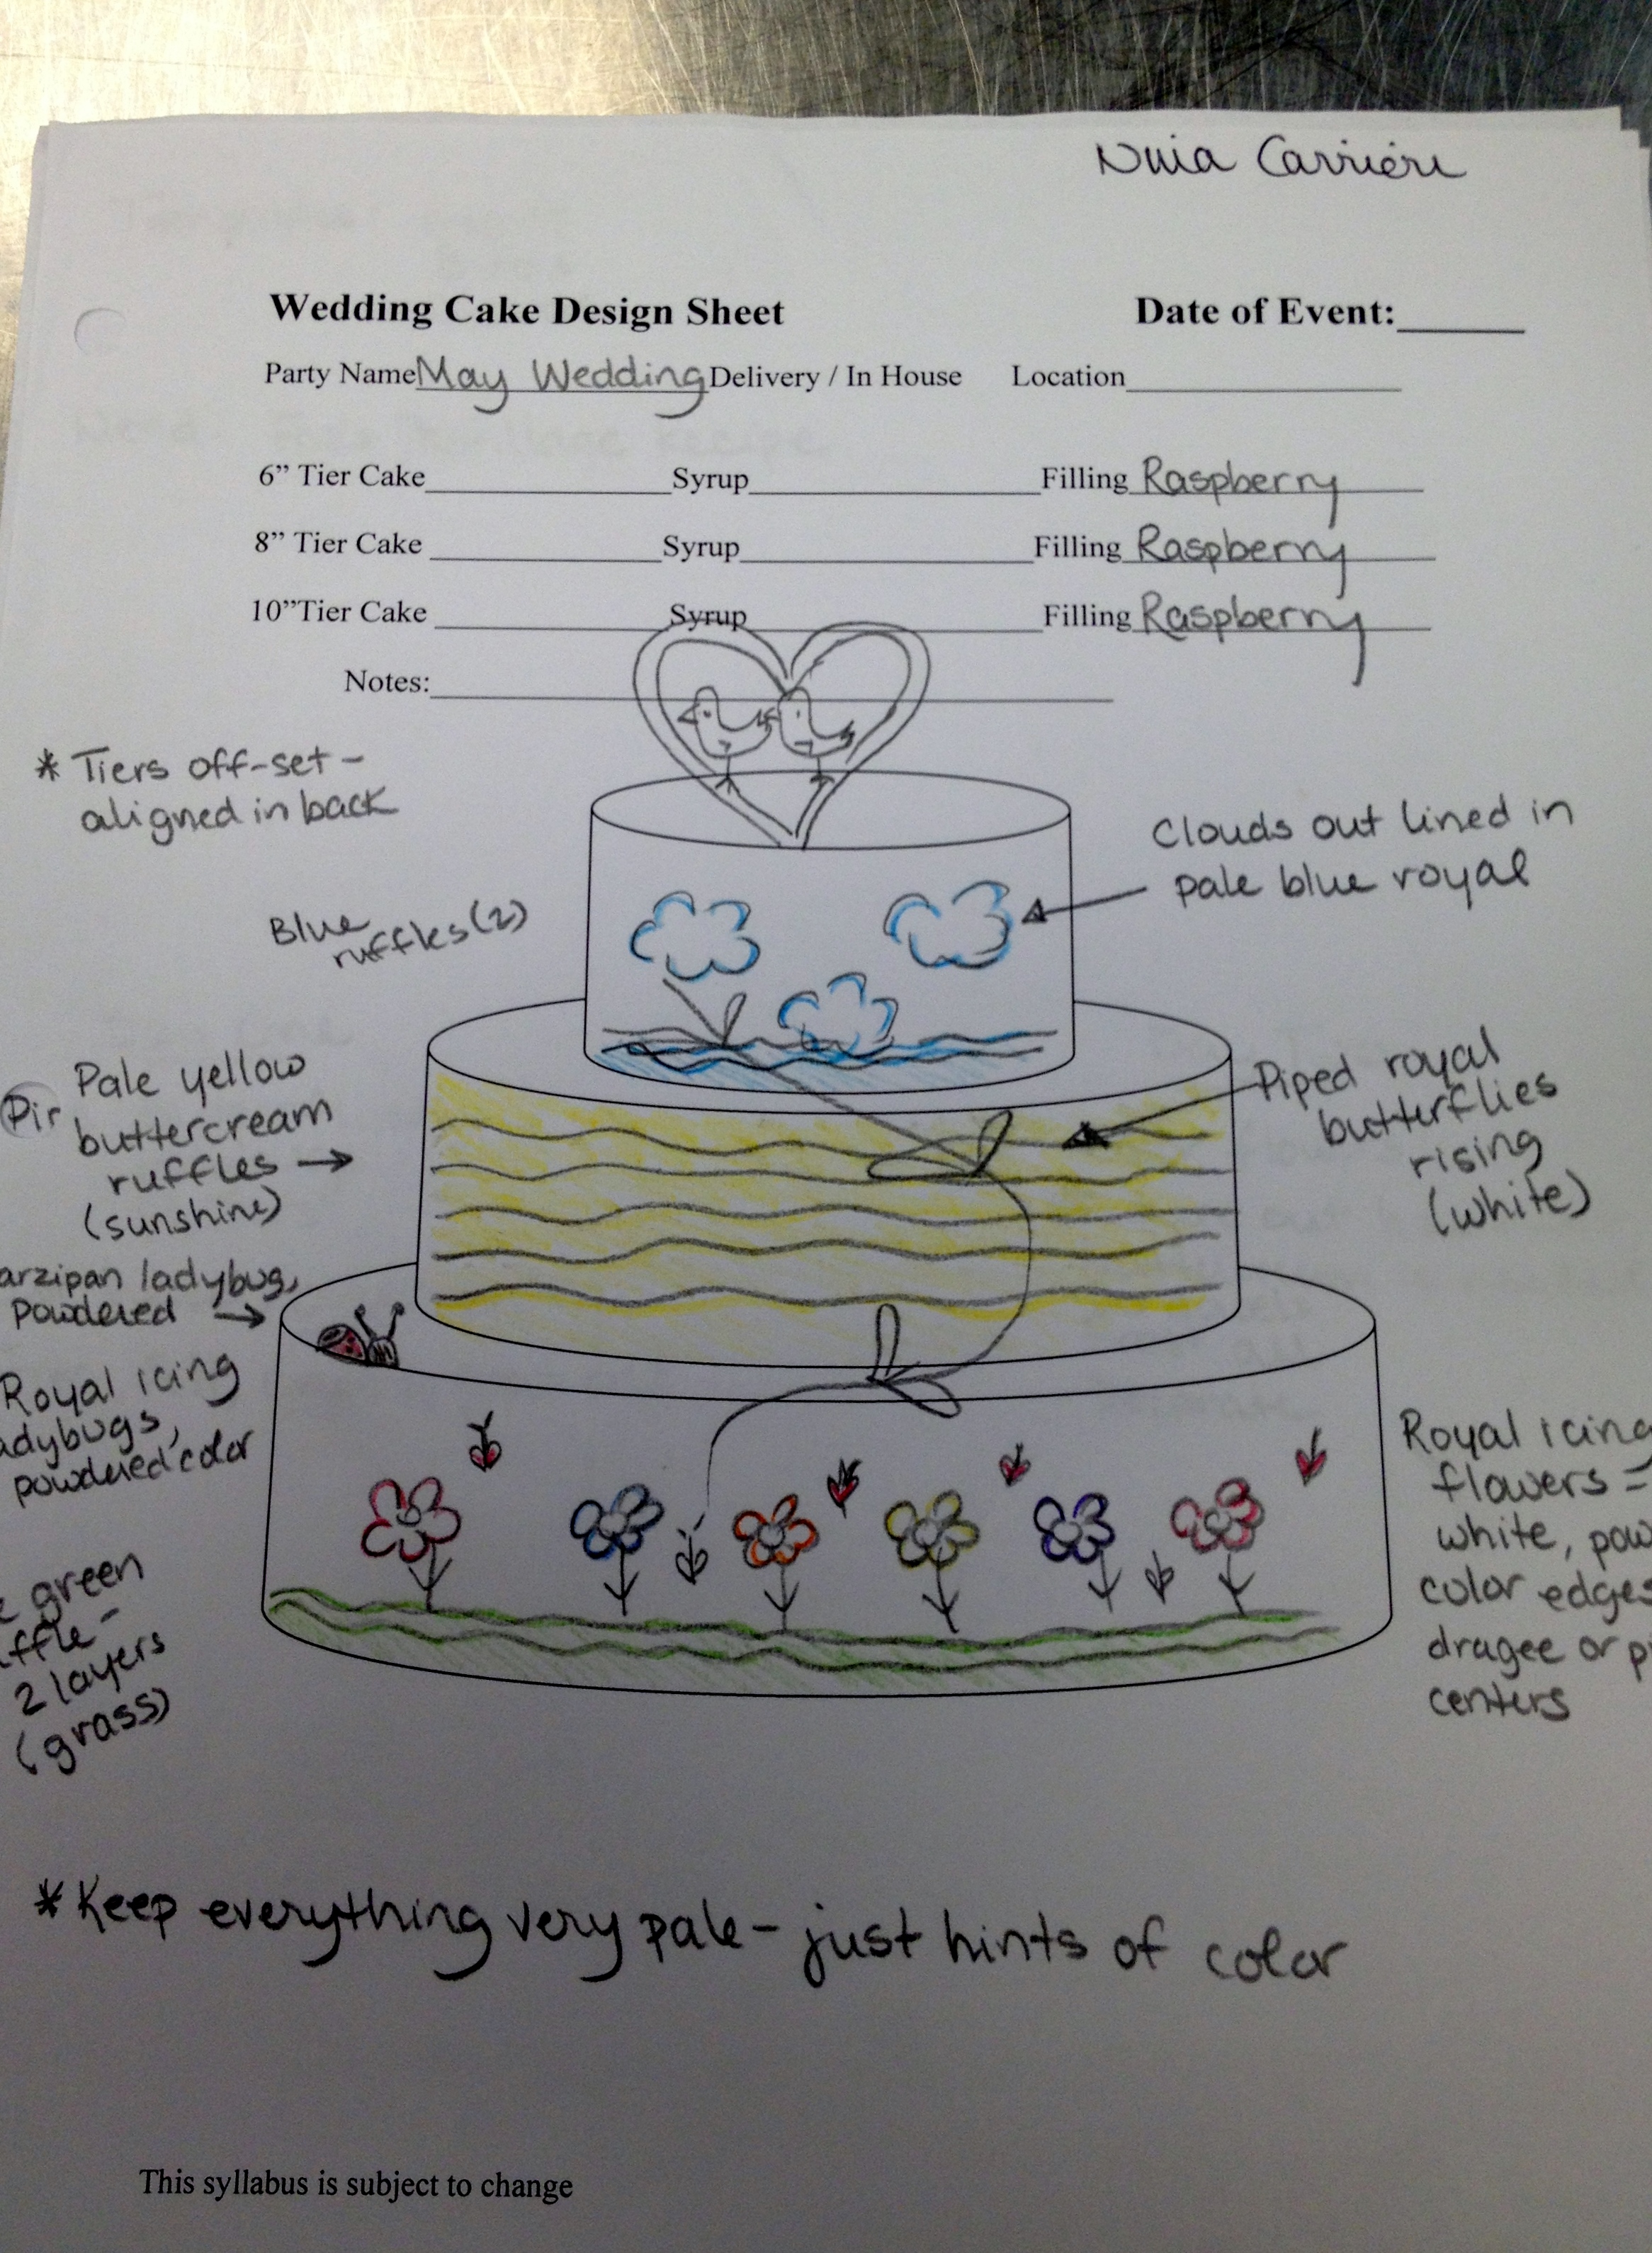 Carriere
Wedding Cake Design Sheet Date of Event:
Party Name May Wedding Delivery / In House Location
6” Tier Cake Syrup Filling Raspberry
8” Tier Cake Syrup Filling Raspberry
10”Tier Cake Syrup Filling Raspberry
Notes:
* Tiers off-set -
aligned in back
Clouds out lined in
pale blue royal
Blue
ruffles (2)
Pale yellow
buttercream
ruffles →
(sunshine)
Piped royal
butterflies
rising
(white)
arzipan ladybug,
powdered →
Royal icing
adybugs,
powdered color
green
ffle -
2 layers
(grass)
Royal icing
flowers =
white, pow
color edges
dragee or p
centers
* Keep everything very pale - just hints of color
This syllabus is subject to change